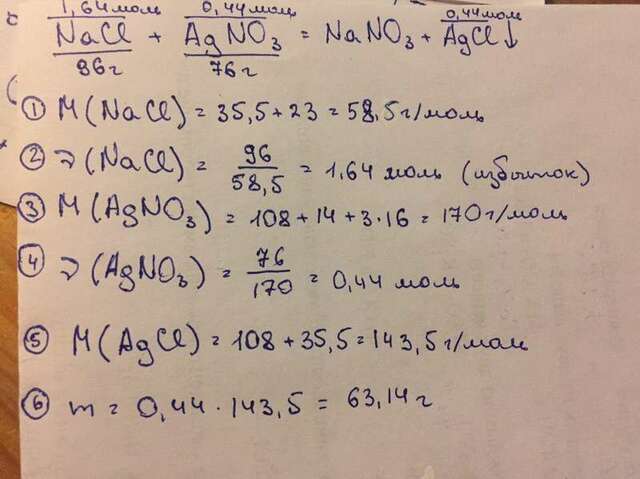 1,64моль 0,44моль 0,44моль
NaCl + AgNO₃ = NaNO₃ + AgCl↓
96г 76г
① M(NaCl) = 35,5+23 = 58,5г/моль
② ν(NaCl) = 96/58,5 = 1,64 моль (избыток)
③ M(AgNO₃) = 108+14+3·16 = 170г/моль
④ ν(AgNO₃) = 76/170 = 0,44 моль
⑤ M(AgCl) = 108+35,5=143,5г/мол
⑥ m = 0,44·143,5 = 63,14г